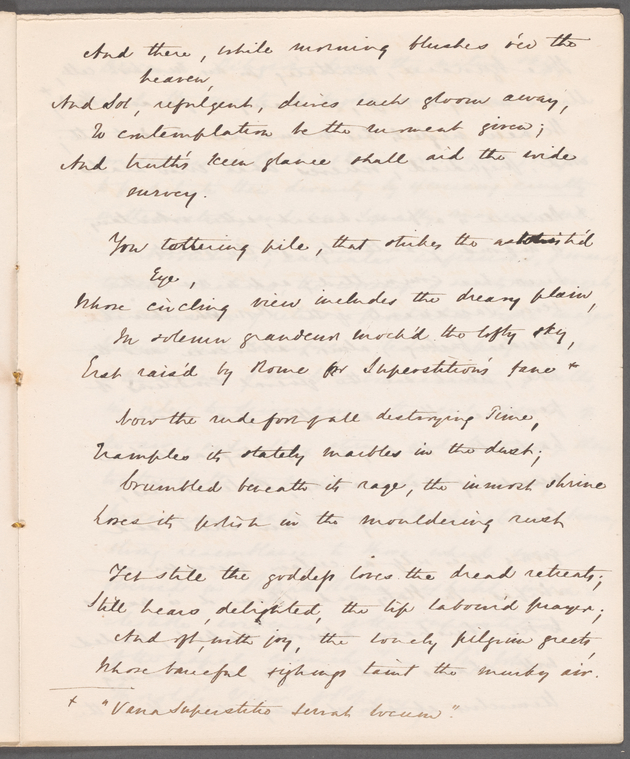 And there, while morning blushes o'er the
heaven,
And Sol, refulgent, drives each gloom away,
To contemplation be the moment given;
And truth's keen glance shall aid the wide
survey.
Yon tottering pile, that strikes the astonish'd
Eye,
Whose circling view includes the dreary plain,
In solemn grandeur mock'd the lofty sky,
Erst rais'd by Rome for Superstition's fane +
Now the rude footfall destroying Time,
Tramples its stately marbles in the dust;
Crumbled beneath its rage, the inmost shrine
Loses its polish in the mouldering rust
Yet still the goddess loves the dread retreats;
Still hears, delighted, the lip labour'd prayer;
And oft, with joy, the lonely pilgrim greets,
Whose baneful sighings taint the murky air.
+ "Vana Superstitio locum".